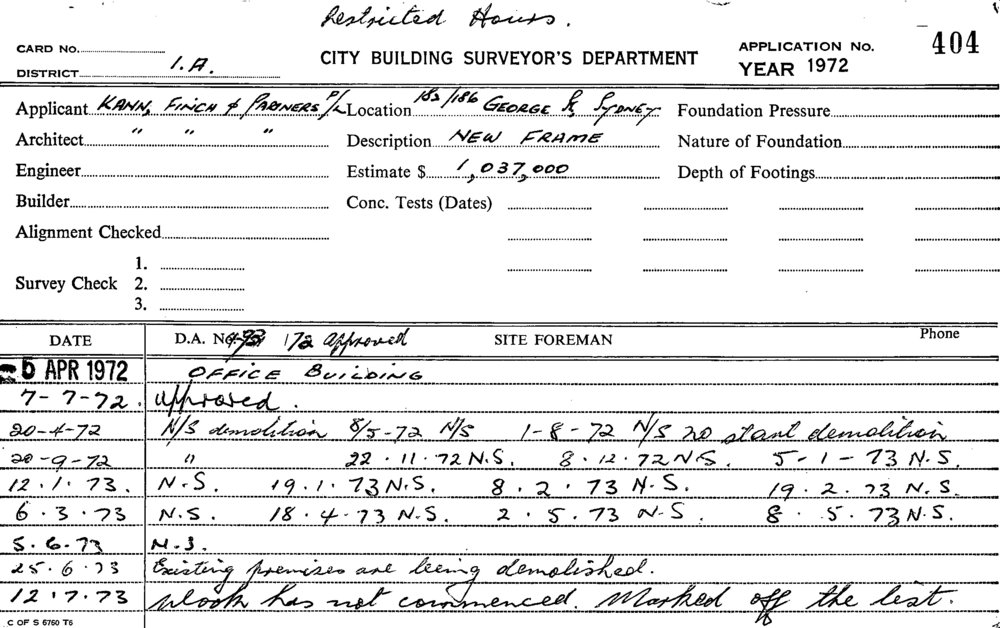 Restricted Hours.
CARD No.
CITY BUILDING SURVEYOR'S DEPARTMENT
APPLICATION No. 404
DISTRICT 1.A.
YEAR 1972
Applicant KANN, FINCH & PARTNERS P/L Location 182/186 GEORGE St, SYDNEY Foundation Pressure
Architect " " " Description NEW FRAME Nature of Foundation
Engineer Estimate $ 1,037,000 Depth of Footings
Builder Conc. Tests (Dates)
Alignment Checked
1.
Survey Check 2.
3.
DATE D.A. No 172 approved SITE FOREMAN Phone
5 APR 1972 OFFICE BUILDING
7-7-72. approved.
20-4-72 N/S demolition 8/5-72 N/S 1-8-72 N/S no start demolition
20-9-72 " 22.11.72 N.S. 8.12.72 N.S. 5-1-73 N.S.
12.1.73. N.S. 19.1.73 N.S. 8.2.73 N.S. 19.2.73 N.S.
6.3.73 N.S. 18.4.73 N.S. 2.5.73 N.S. 8.5.73 N.S.
5.6.73 N.S.
25.6.73 Existing premises are being demolished.
12.7.73 work has not commenced. Marked off the list.
C OF S 6760 T6